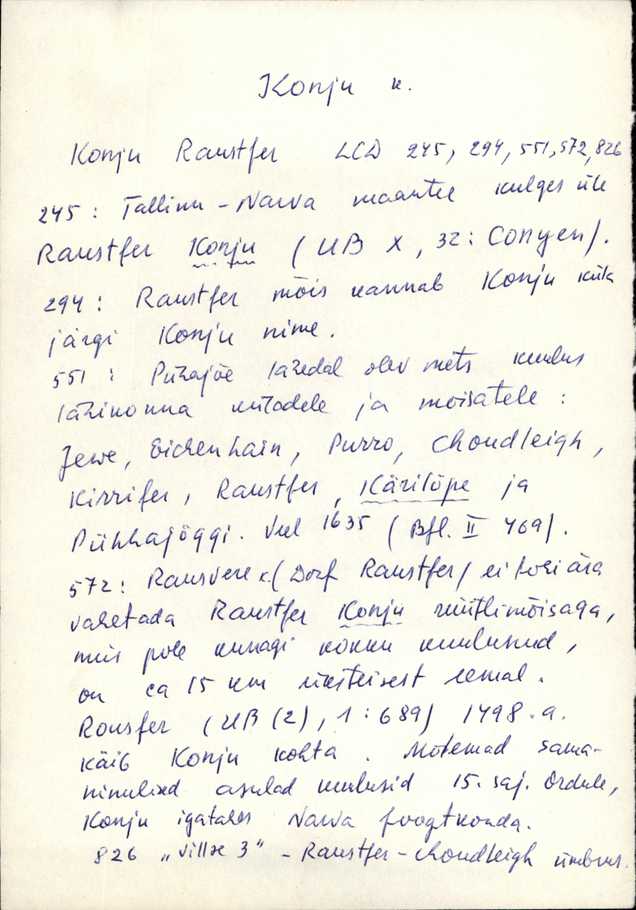 Konju k.
Konju Raustfer LCD 245, 294, 551, 572, 826
245 : Tallinn - Narva maantee kulges üle
Raustfer Konju (UB X, 32: Conyen).
294 : Raustfer mõis kannab Konju küla
järgi Konju nime.
551 : Pühajõe lähedal olev mets kuulus
lähikonna küladele ja mõisatele :
Jewe, Eichenhain, Purro, Choudleigh,
Kirrifer, Raustfer, Kärilõpe ja
Pühhajöggi. Veel 1635 (Bfl. II 469).
572 : Rausvere k. (Dorf Raustfer) ei tohi ära
vahetada Raustfer Konju rüütlimõisaga,
mis pole kunagi kokku kuulunud,
on ca 15 km üksteisest eemal.
Rousfer (UB (2), 1 : 689) 1498. a.
käib Konju kohta. Mõlemad sama-
nimelised asulad kuulusid 15. saj. Ordule,
Konju igatahes Narva foogtkonda.
826 - Raustfer - Choudleigh ümbrus.